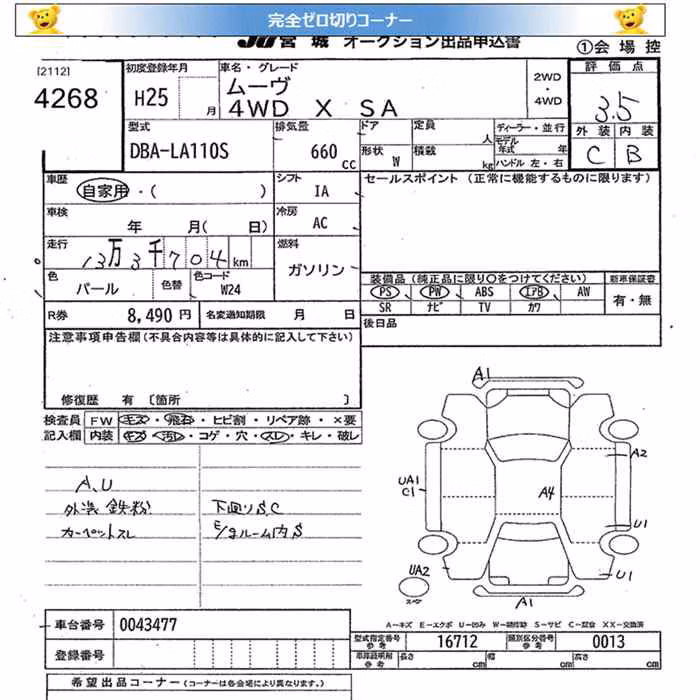 完全ゼロ切りコーナー
JU 宮城 オークション出品申込書
①会場控
[2112]
4268
初度登録年月
H25 月
車名・グレード
ムーヴ
4WD X SA
2WD
・
4WD
評価点
3.5
外装 内装
C B
型式
DBA-LA110S
排気量
660 cc
ドア
形状
W
定員 人
積載 kg
ディーラー・並行
モデル年式 年
ハンドル 左・右
車歴
自家用・( )
シフト
IA
セールスポイント (正常に機能するものに限ります)
車検
年 月( 日)
冷房
AC
走行
13万3千704km
燃料
ガソリン
色
パール
色替
色コード
W24
装備品 (純正品に限り○をつけてください)
PS PW ABS エアB AW
SR ナビ TV カワ
新車保証書
有・無
R券 8,490 円
名変通知期限 月 日
後日品
注意事項申告欄(不具合内容等は具体的に記入して下さい)
修復歴 有 〔箇所 〕
検査員 FW キズ・飛石・ヒビ割・リペア跡・×要
記入欄 内装 キズ・汚レ・コゲ・穴・スレ・キレ・破レ
A、U
外装 鉄粉
カーペットスレ
下回りS、C
E/gルーム内S
A1
A2
UA1
C1
A4
U1
UA2
U1
A1
A－キズ E－エクボ U－凹み W－補修跡 S－サビ C－腐食 XX－交換済
車台番号 0043477
登録番号
型式指定番号 参考 16712
類別区分番号 参考 0013
参考 長さ cm 幅 cm 高さ cm
希望出品コーナー (コーナーは各会場により異なります。)